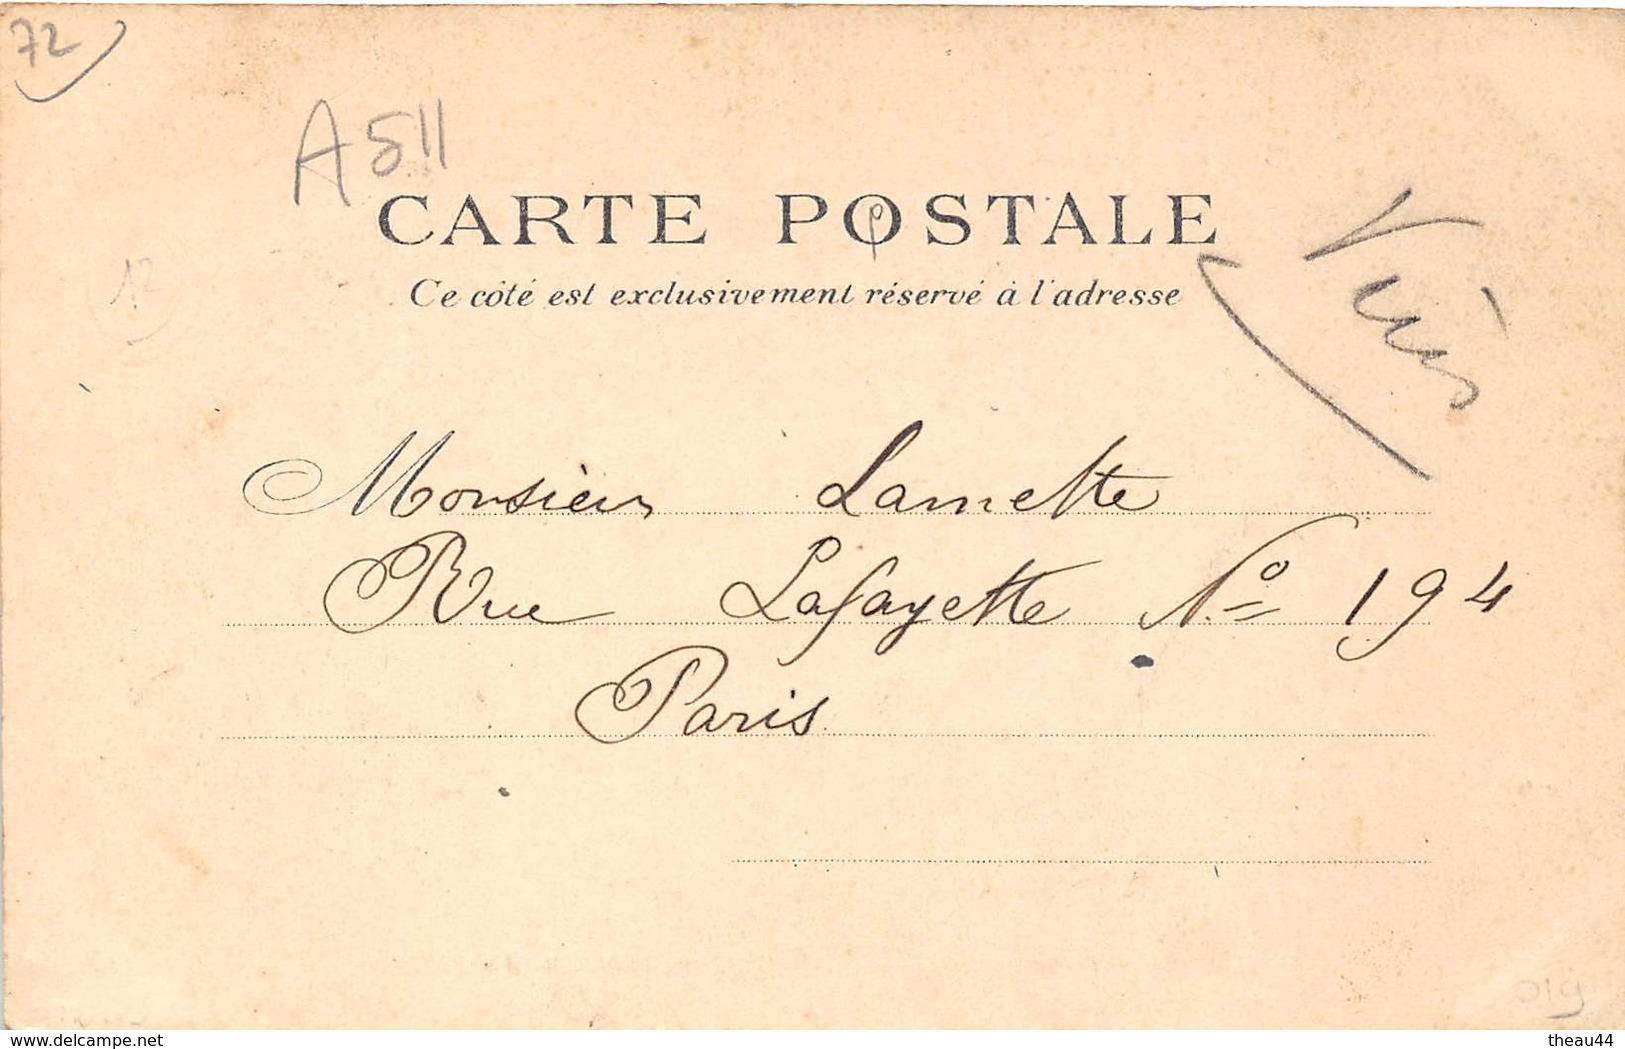 72
A 511
CARTE POSTALE
Ce côté est exclusivement réservé à l'adresse
12
Monsieur Lamette
Rue Lafayette No 194
Paris
019
www.delcampe.net
theau44